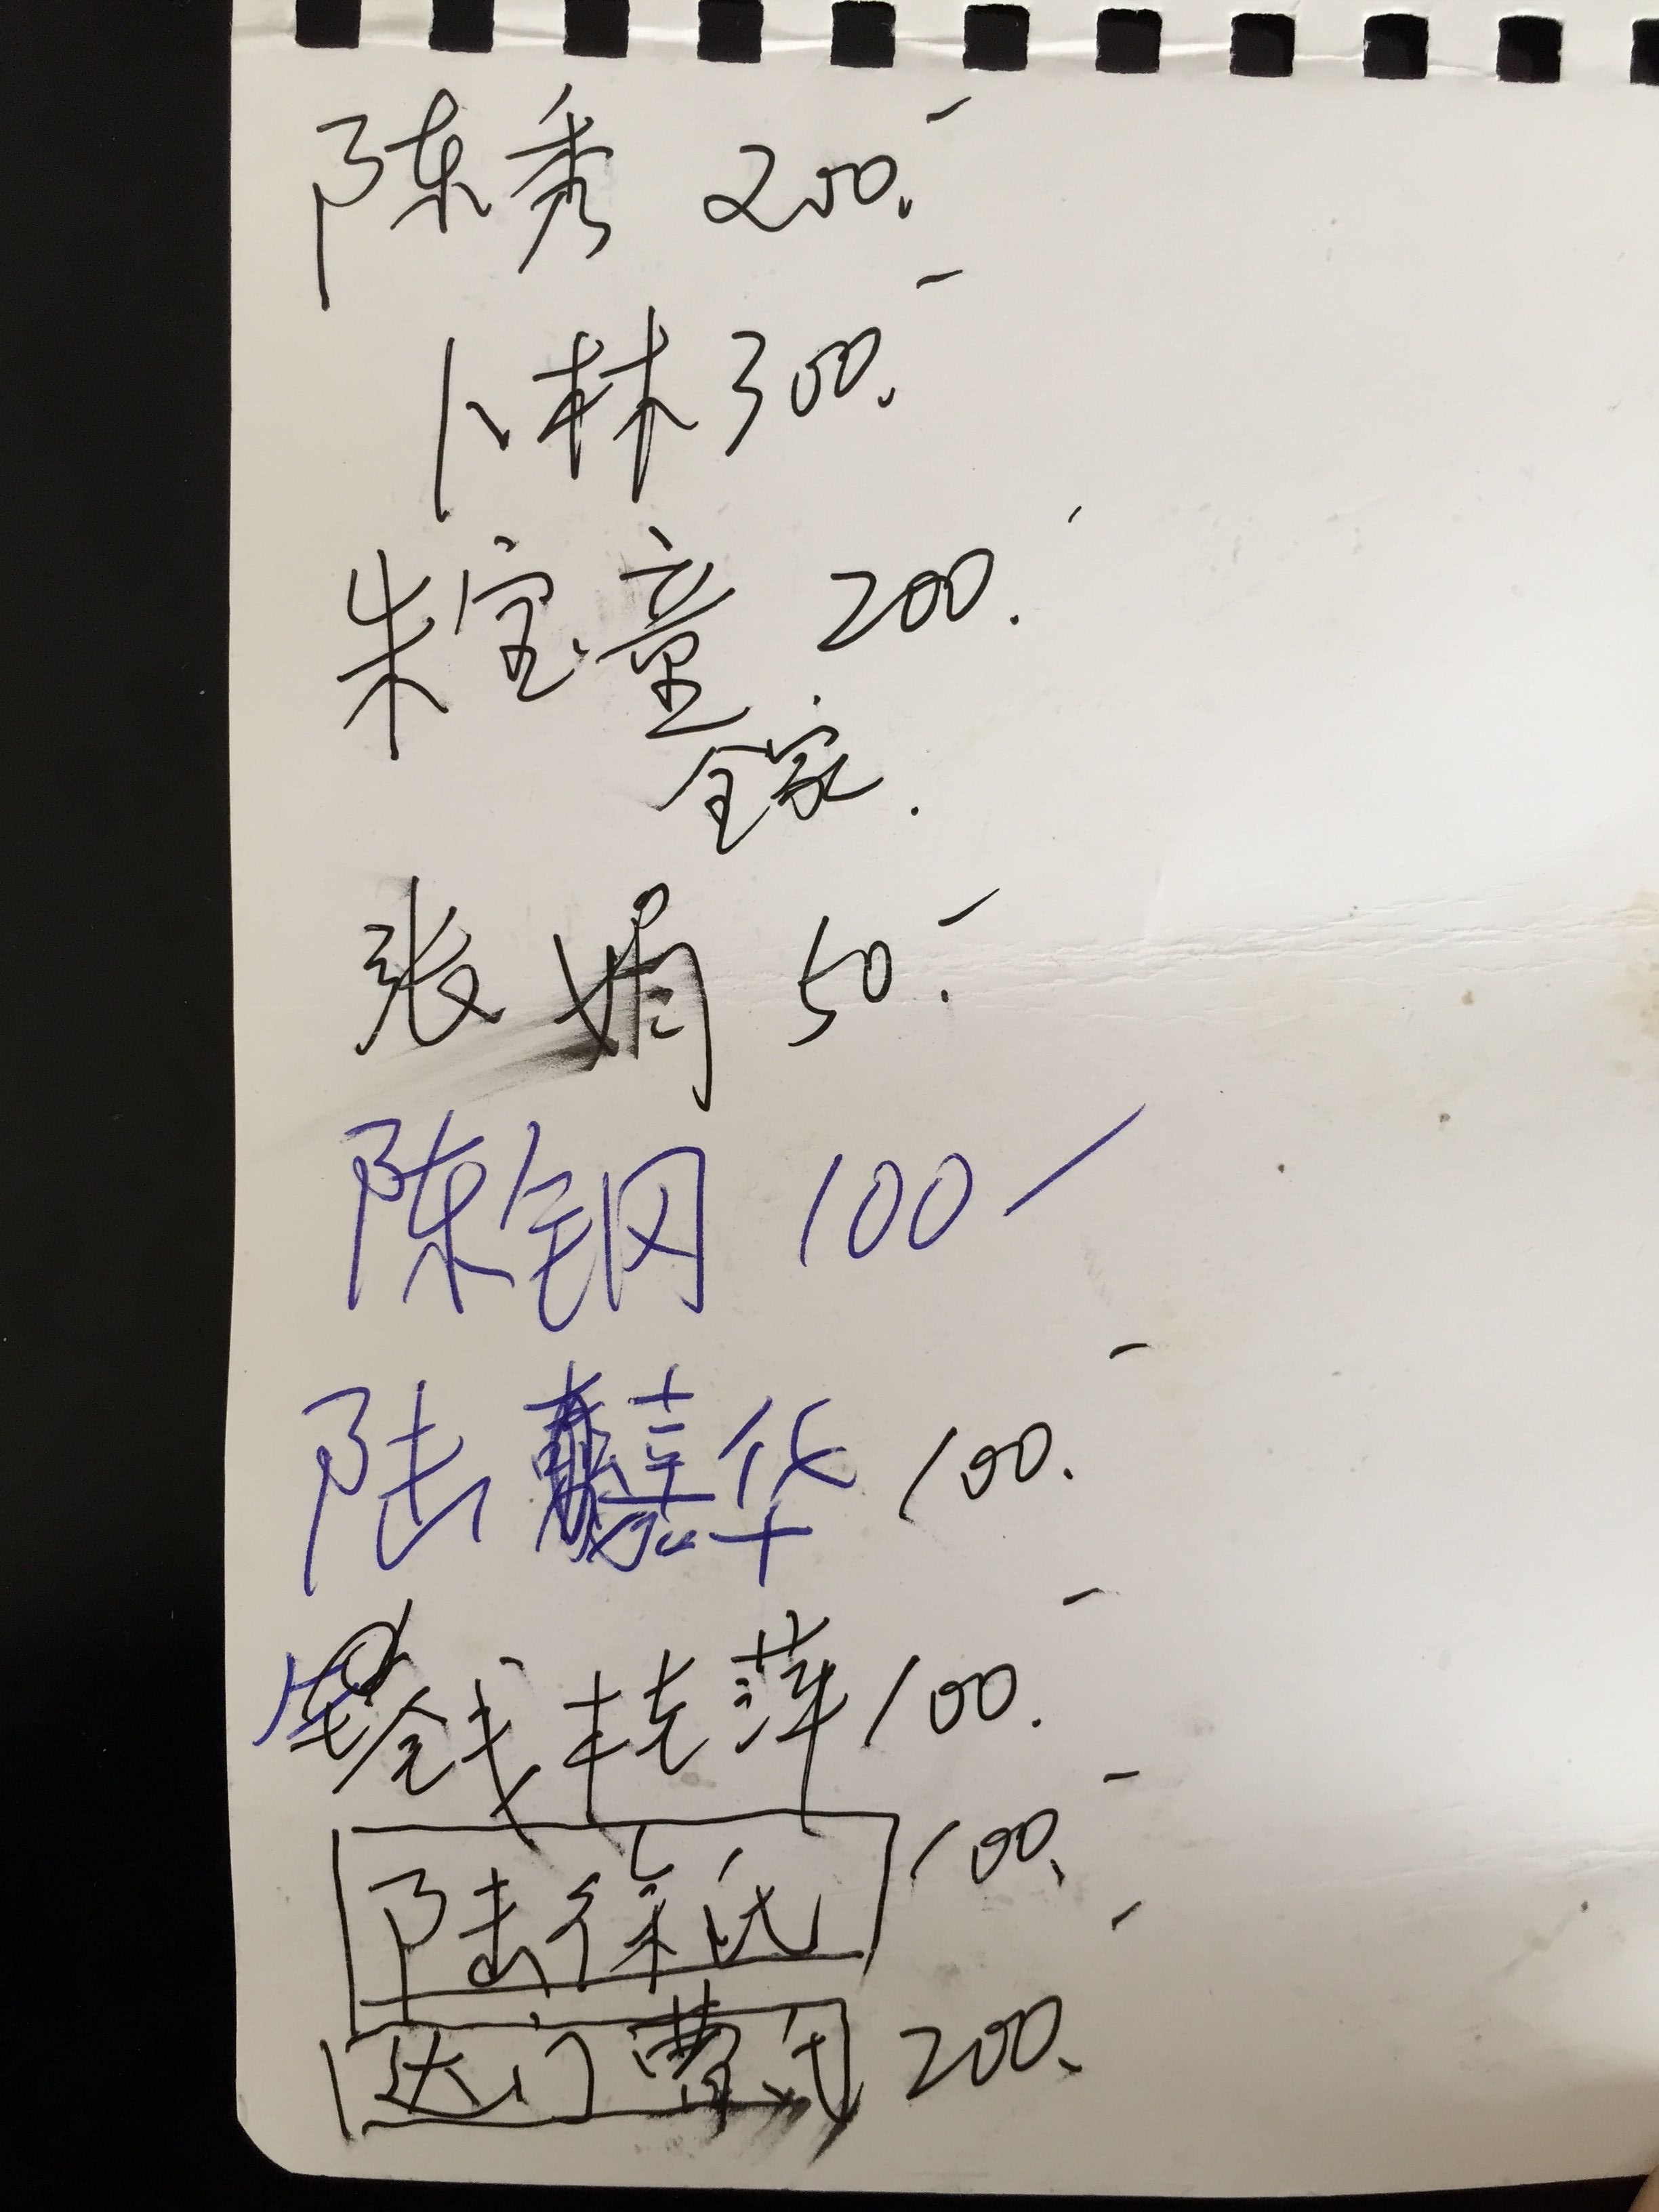 陈秀 200.-
卜林 300.-
朱宝童 200.-
全家.
张娟 50.-
陈钢 100-
陆嘉华 100.-
钱桂萍 100.-
陆徐氏 100.-
达门曹氏 200.-